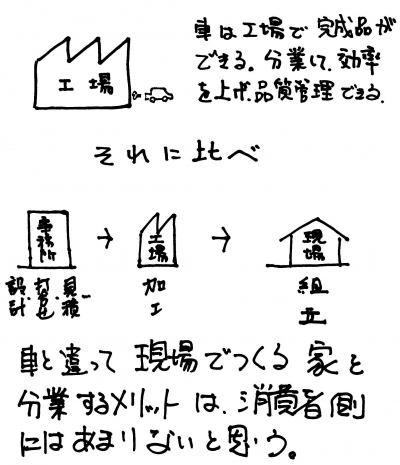 車は工場で完成品が
できる。分業して、効率
を上げ、品質管理できる。
工場
それに比べ
事務所
→
工場
→
現場
設計
打合
見積
加工
組立
車と違って現場でつくる家を
分業するメリットは、消費者側
にはあまりないと思う。